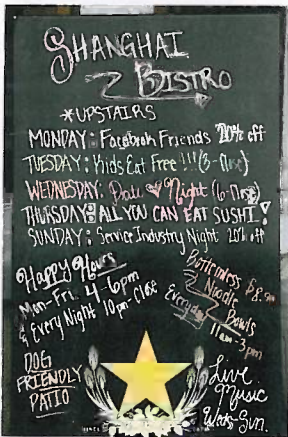 SHANGHAI
BISTRO
*UPSTAIRS
MONDAY: Facebook Friends 20% off
TUESDAY: Kids Eat Free !!! (3-Close)
WEDNESDAY: Date Night (6-Close)
THURSDAY: ALL YOU CAN EAT SUSHI!
SUNDAY: Service Industry Night 20% off
Happy Hours
Mon-Fri 4-6pm
& Every Night 10pm-Close
Bottomless
Noodle
Bowls
Everyday
11am-3pm
DOG
FRIENDLY
PATIO
Live
Music
Weds-Sun.